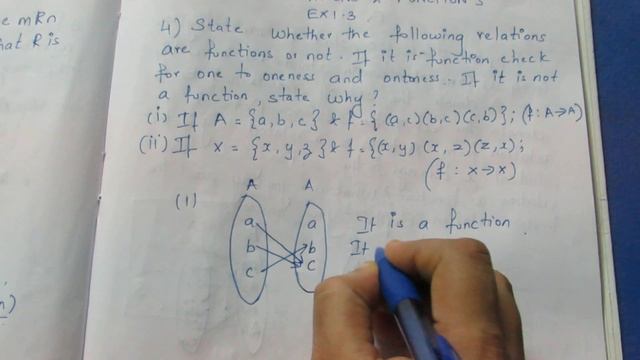 e mRn
hat R is
EX 1.3
4) State whether the following relations
are functions or not. If it is function check
for one to oneness and ontoness. If it is not
a function, state why?
(i) If A = {a, b, c} & f = {(a,c)(b,c)(c,b)}; (f: A→A)
(ii) If X = {x, y, z} & f = {(x,y) (x,z)(z,x);
(f : x→x)
(1)
A A
a a
b b
c c
It is a function.
It